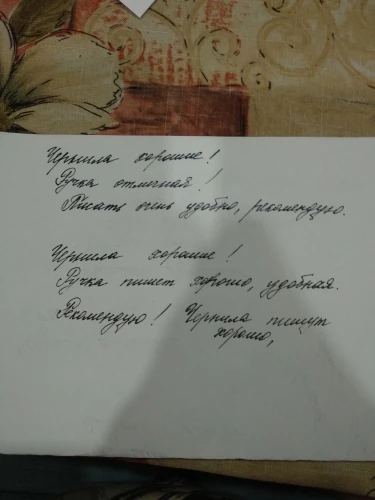 Чернила хорошие!
Ручка отличная!
Писать очень удобно, рекомендую.
Чернила хорошие!
Ручка пишет хорошо, удобная.
Рекомендую! Чернила пишут
хорошо,